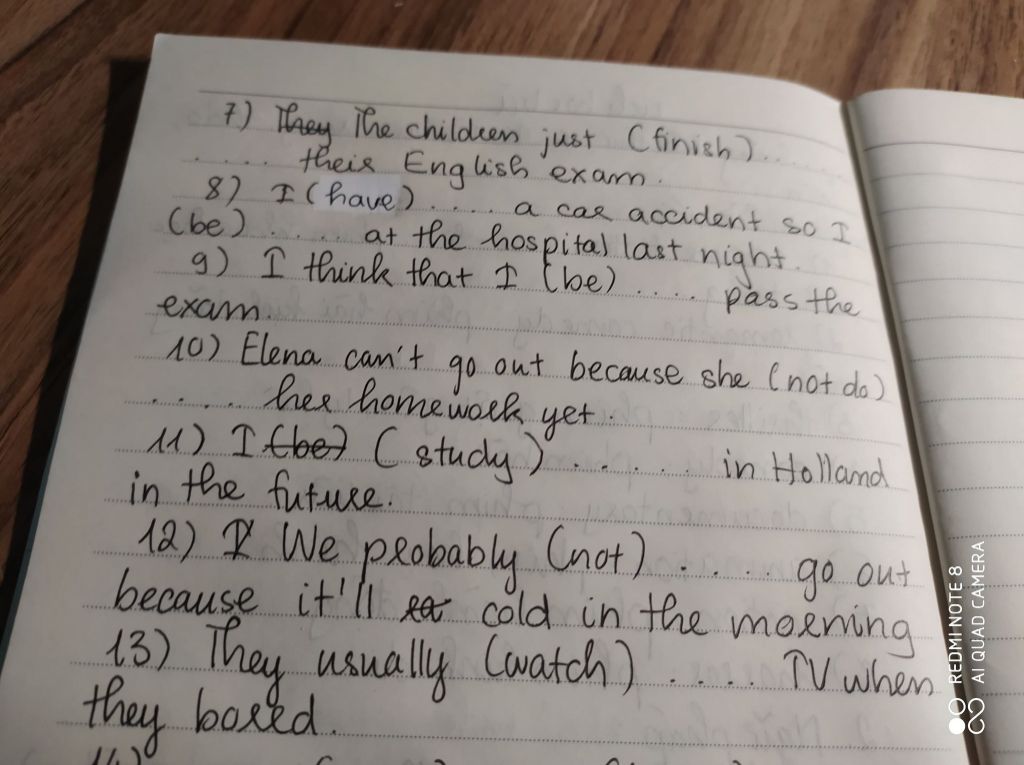 7) They The children just (finish) ....
.... their English exam.
8) I (have) .... a car accident so I
(be) .... at the hospital last night.
9) I think that I (be) .... pass the
exam.
10) Elena can't go out because she (not do)
.... her homework yet.
11) I (be) (study) ...... in Holland
in the future.
12) I We probably (not) .... go out
because it'll cold in the morning
13) They usually (watch) .... TV when
they bored.
14)
REDMI NOTE 8
AI QUAD CAMERA